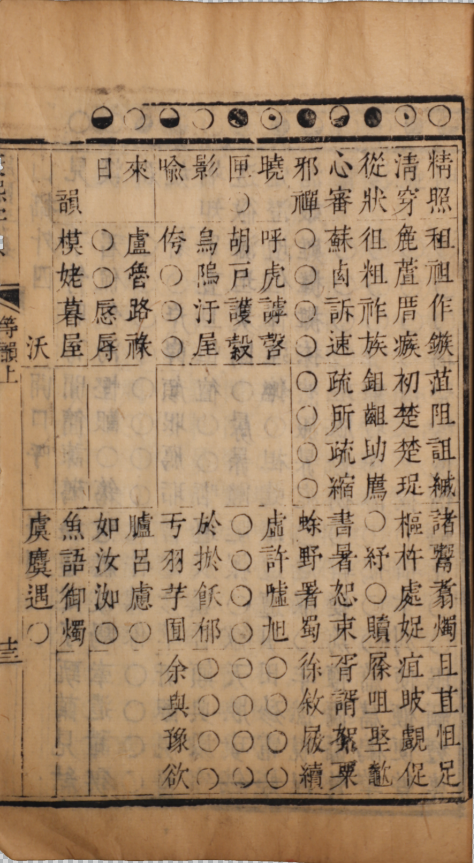 精照租祖作鏃菹阻詛縬諸𪗋翥燭且苴怚足
清穿麄蘆厝瘯初楚楚珿樞杵處娖疽跛覷促
從狀徂粗祚族鉏齟助𪆻○紓○贖
心審蘇卤訴速疏所疏縮書暑恕束胥諝絮粟
邪禪○○○○○○○○蜍野署蜀徐敘屐續
曉呼虎謼嗀虛許噓旭○○○○
匣○胡戸護縠○○○○○○○○
影烏隖汙屋於扵飫郁○○○○
喻侉○○○亐羽芋囿余與豫欲
來盧魯路祿臚呂慮○
日○○㥛辱如汝洳○
韻模姥暮屋魚語御燭
沃虞麌遇○
等韻上
十三